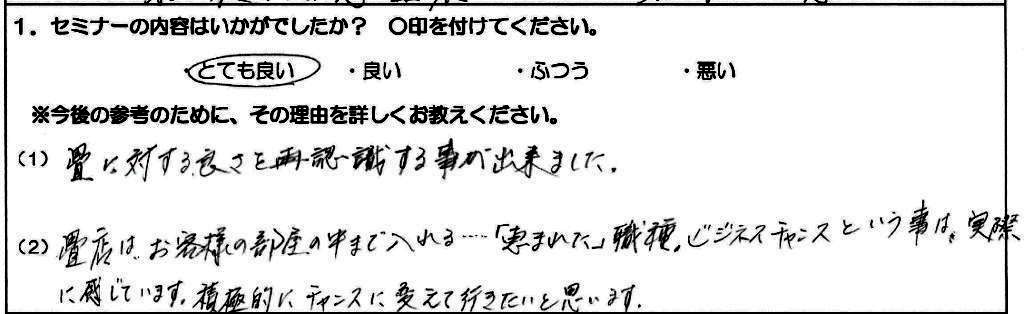 1．セミナーの内容はいかがでしたか？　〇印を付けてください。
・とても良い　・良い　・ふつう　・悪い
※今後の参考のために、その理由を詳しくお教えください。
(1) 畳に対する良さを再認識する事が出来ました。
(2) 畳店は、お客様の部屋の中まで入れる……「恵まれた」職種。ビジネスチャンスという事は、実際
に感じています。積極的にチャンスに変えて行きたいと思います。